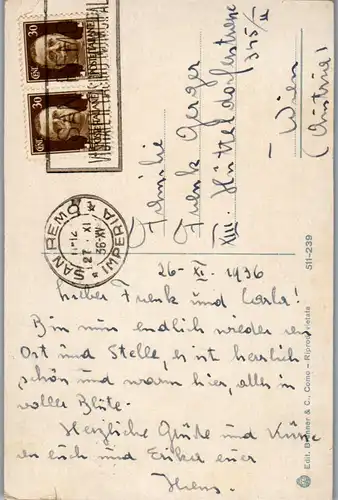 30
30
POSTE ITALIANE
SAN REMO
* IMPERIA *
11-12
27 · XI
36-XV
Familie
Frenk Gerger
XIII. Hütteldorferstrasse
345/II
Wien
(Austria)
26-XI. 1936
Lieber Frenk und Carla!
Bin nun endlich wieder an
Ort und Stelle, es ist herrlich
schön und warm hier, alles in
voller Blüte.
Herzliche Grüße und Küsse
an euch und Erika euer
Hans
511-239
Edit. & C., Como - Riprod. vietata